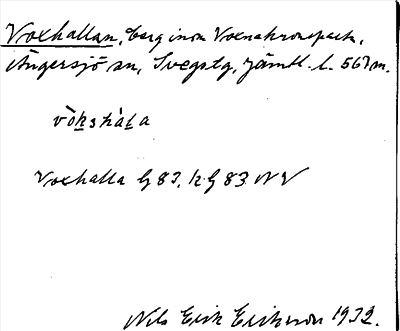 Voxhallan, berg inom Voxnakronopark,
Ängersjö sn, Svegs tg, Jämtl. l. 567 m.
vò̀kshàla
Voxhalla G 83, k G 83 NV
Nils Erik Eriksson 1932.